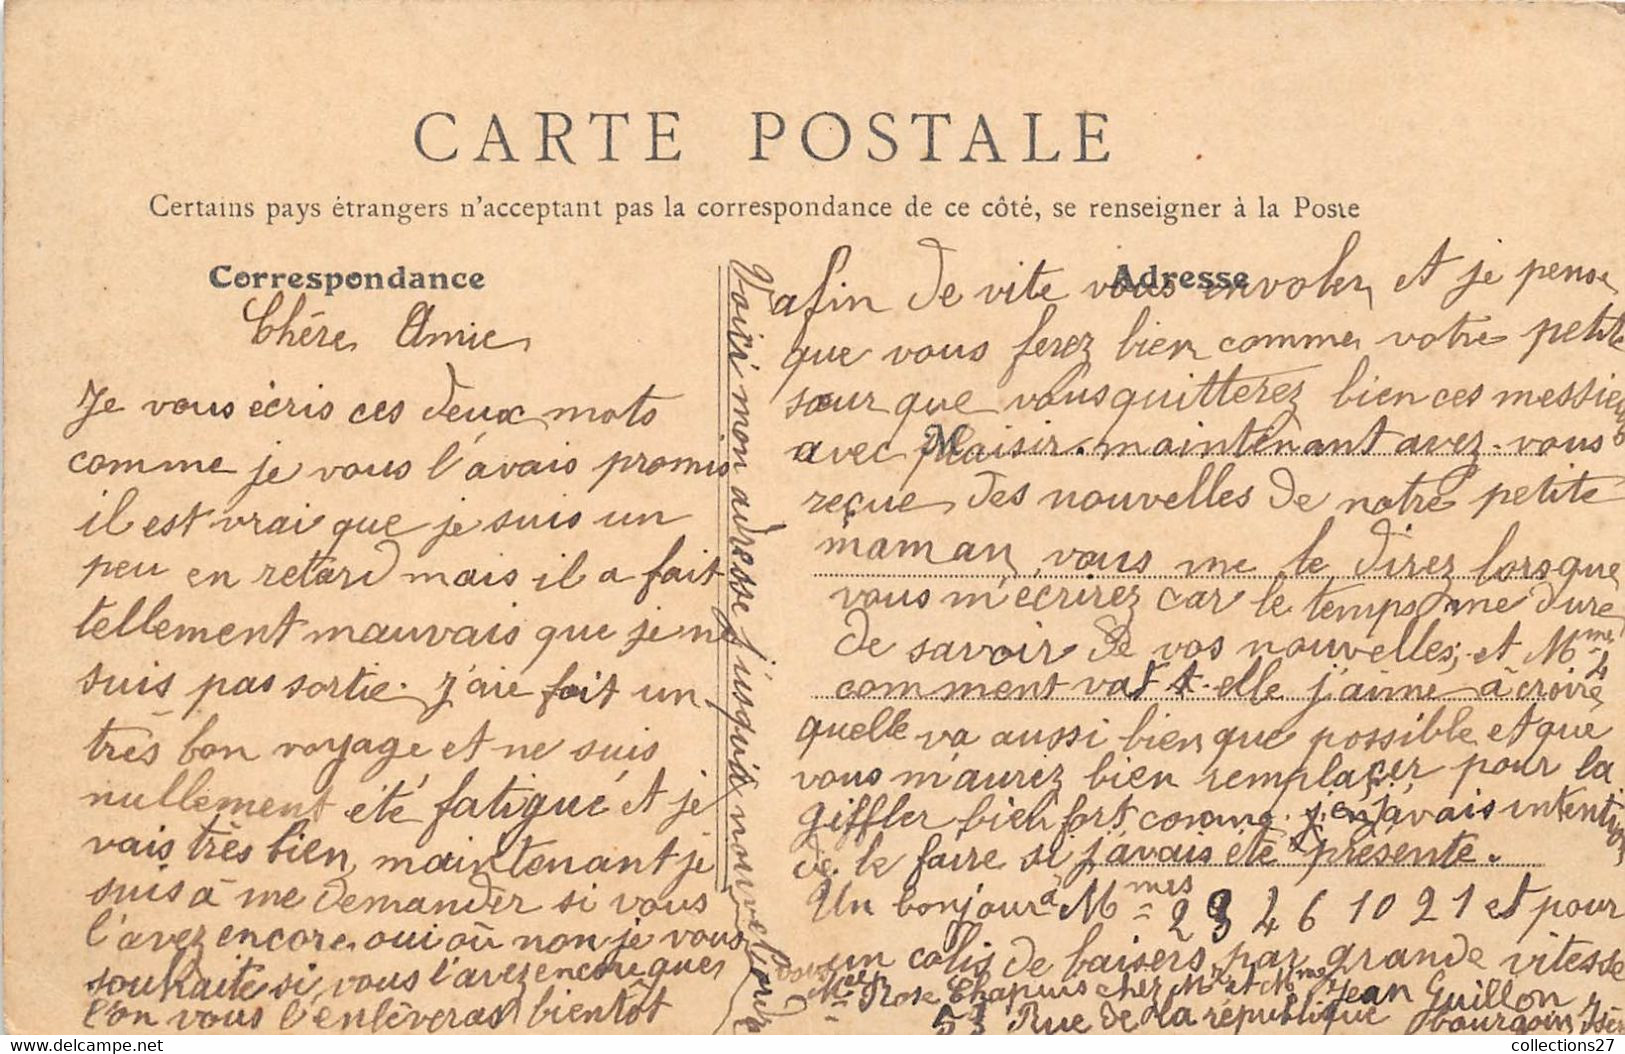 CARTE POSTALE
Certains pays étrangers n'acceptant pas la correspondance de ce côté, se renseigner à la Poste
Correspondance
Chère Amie
Je vous écris ces deux mots
comme je vous l'avais promis
il est vrai que je suis un
peu en retard mais il a fait
tellement mauvais que je ne
suis pas sortie. J'aie fait un
très bon voyage et ne suis
nullement été fatigué et je
vais très bien, maintenant je
suis à me demander si vous
l'avez encore oui où non je vous
souhaite si vous l'avez encore que
l'on vous l'enlèveras bientôt
Voici mon adresse j'usqu'à nouvel ordre
Adresse
afin de vite vous envoler et je pense
que vous ferez bien comme votre petite
sœur que vous quitterez bien ces messieurs
M
avec plaisir. maintenant avez-vous
reçue des nouvelles de notre petite
maman, vous me le direz lorsque
vous m'écrirez car le temps me dure
de savoir de vos nouvelles, et Mme 4
comment vat t-elle j'aime à croire
quelle va aussi bien que possible et que
vous m'aurez bien remplacer pour la
giffler bien fort j'en j'avais intention
de le faire si j'avais été présente.
Un bonjour à Mmes 2 3 4 6 10 21 et pour
vous un colis de baisers par grande vitesse
Rose Chapuis chez Mr et Mme Jean Guillon
51 Rue de la république bourgoin Isère
collections27